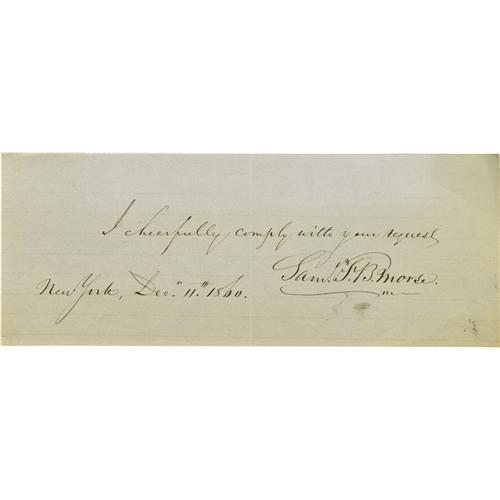 I cheerfully comply with your request
Sam.l F. B. Morse.
New York, Dec.r 11.th 1860.